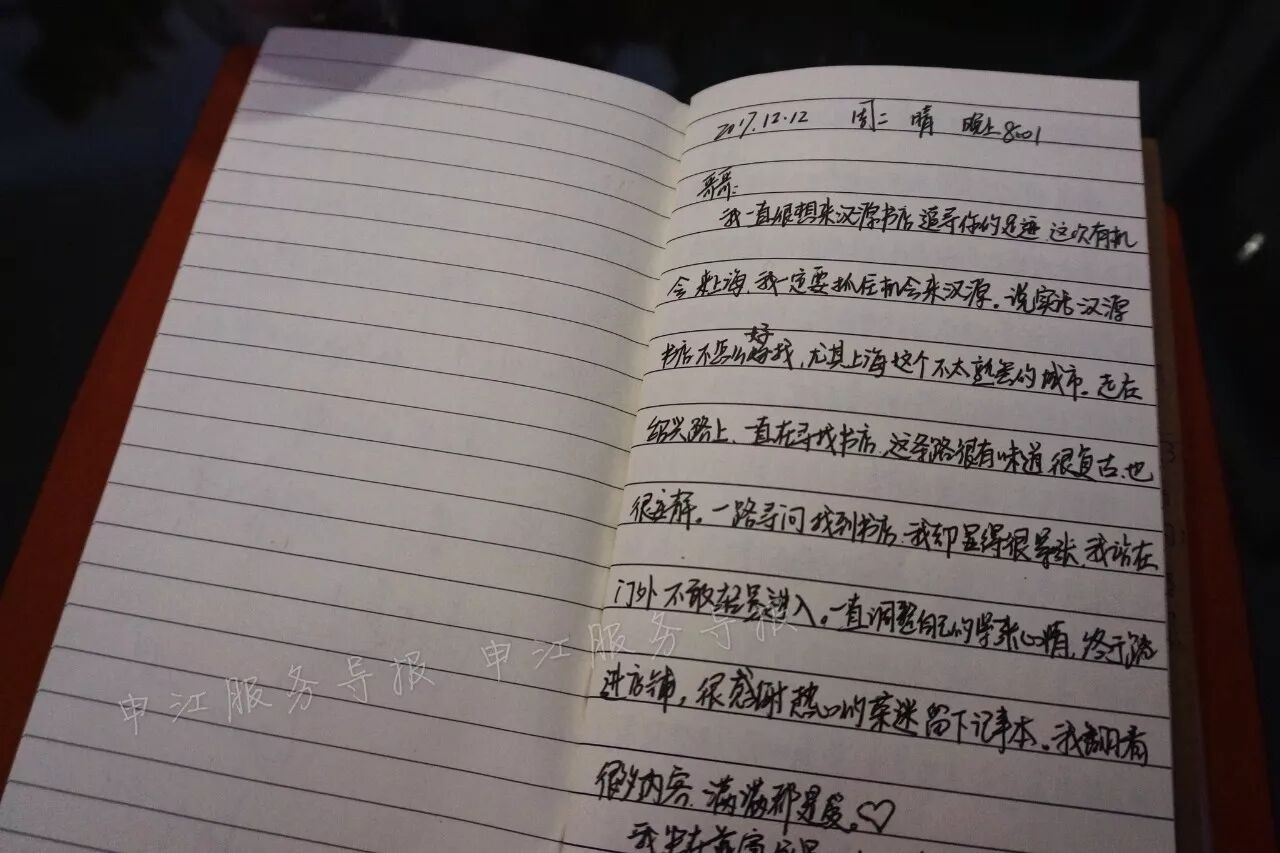 2017.12.12 周二 晴 晚上8:01
哥哥:
我一直很想来汉源书店追寻你的足迹.这次有机
会来上海,我一定要抓住机会来汉源。说实话汉源
书店不怎么好找,尤其上海这个不太熟悉的城市。走在
绍兴路上、一直在寻找书店.这条路很有味道很复古、也
很安静。一路寻问找到书店.我却显得很紧张,我站在
门外不敢轻易进入。一直调整自己的紧张心情,终于踏
进店铺,很感谢热心的荣迷留下记事本。我翻看
很多内容.满满都是爱。♡
我坐在
申江服务导报 申江服务导报